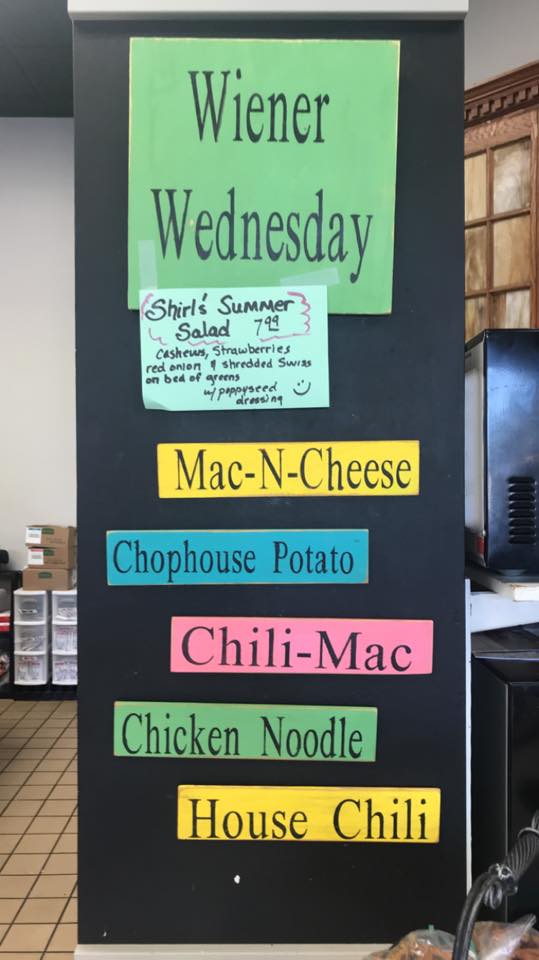 Wiener
Wednesday
Shirl's Summer
Salad 7.99
Cashews, Strawberries
red onion & shredded Swiss
on bed of greens
w/ poppyseed
dressing
Mac-N-Cheese
Chophouse Potato
Chili-Mac
Chicken Noodle
House Chili